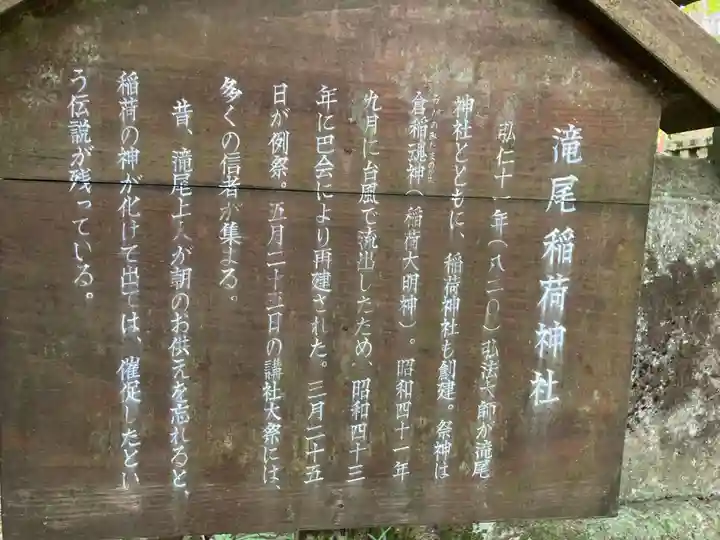 滝尾稲荷神社
弘仁十一年(八二〇)弘法大師が滝尾
神社とともに、稲荷神社も創建。祭神は
倉稲魂神(稲荷大明神)。昭和四十一年
九月に台風で流出したため、昭和四十三
年に巴会により再建された。三月二十五
日が例祭。五月二十五日の講社大祭には、
多くの信者が集まる。
昔、滝尾上人が朝のお供えを忘れると、
稲荷の神が化けて出ては、催促したとい
う伝説が残っている。